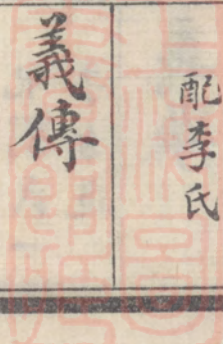 配李氏
義傳